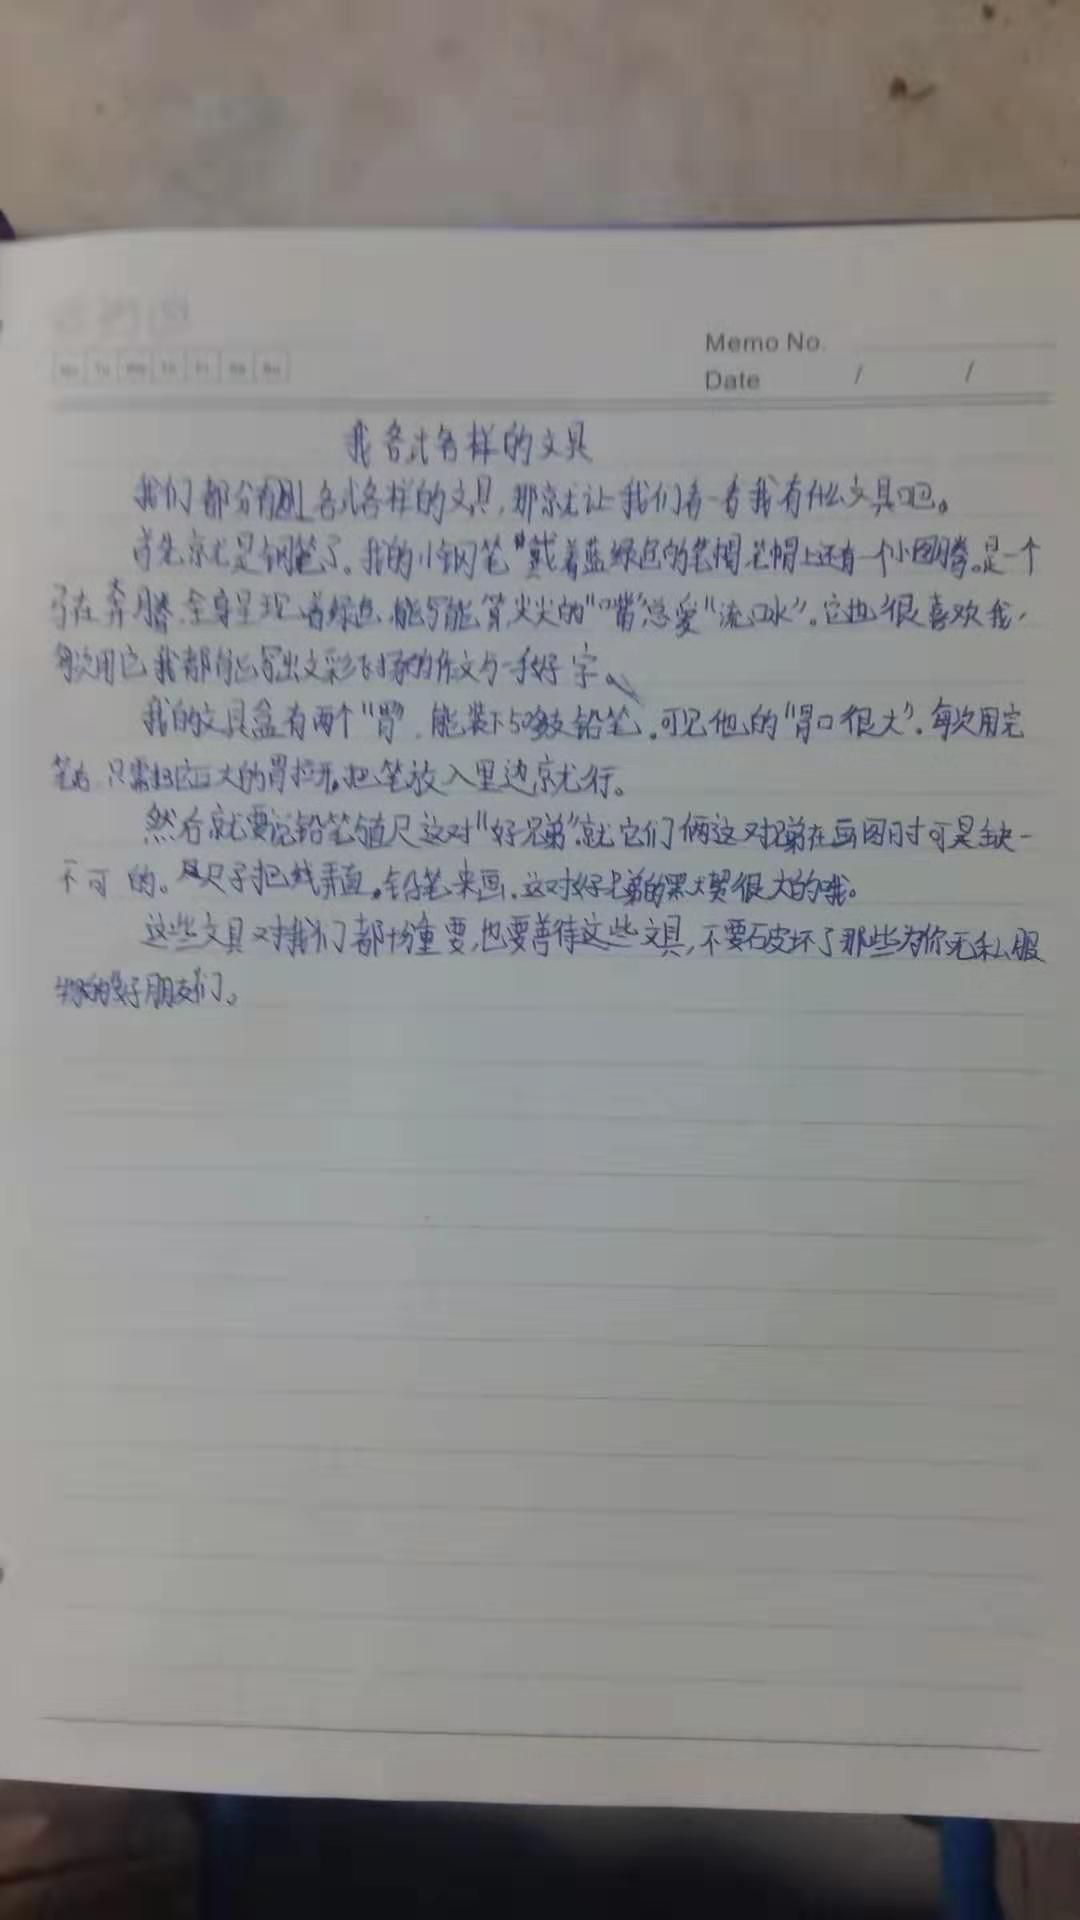 Mo Tu We Th Fr Sa Su
Memo No.
Date / /
我各式各样的文具
我们都分有各式各样的文具,那就让我们看一看我有什么文具吧。
首先就是钢笔了。我的小钢笔"戴着蓝绿色的笔帽,笔帽上还有一个小图腾。是一个
在奔腾,全身呈现着绿色,能写能算尖尖的"嘴"总爱"流口水"。它也很喜欢我,
每次用它我都能写出文彩飞扬的作文与一手好字。
我的文具盒有两个"胃",能装下50多支铅笔,可见他的"胃口很大"。每次用完
笔后,只需把它巨大的胃拉开,把笔放入里边就行。
然后就要说铅笔直尺这对"好兄弟",就它们俩这对兄弟在画图时可是缺一
不可的。尺子把线弄直。铅笔来画,这对好兄弟的默契很大的哦。
这些文具对我们都十分重要,也要善待这些文具,不要破坏了那些为你无私服
务的好朋友们。